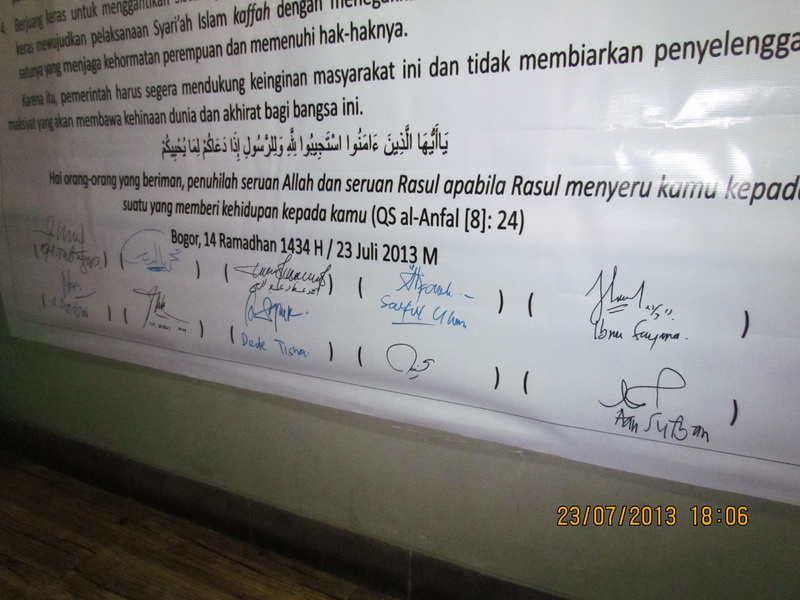 4. Berjuang keras untuk menggantikan
keras mewujudkan pelaksanaan Syari'ah Islam kaffah dengan
satunya yang menjaga kehormatan perempuan dan memenuhi hak-haknya.
Karena itu, pemerintah harus segera mendukung keinginan masyarakat ini dan tidak membiarkan penyelengga
maksiyat yang akan membawa kehinaan dunia dan akhirat bagi bangsa ini.
يَاأَيُّهَا الَّذِينَ ءَامَنُوا اسْتَجِيبُوا لِلَّهِ وَلِلرَّسُولِ إِذَا دَعَاكُمْ لِمَا يُحْيِيكُمْ
Hai orang-orang yang beriman, penuhilah seruan Allah dan seruan Rasul apabila Rasul menyeru kamu kepada
suatu yang memberi kehidupan kepada kamu (QS al-Anfal [8]: 24)
Bogor, 14 Ramadhan 1434 H / 23 Juli 2013 M
( ) ( ) ( ) ( Saiful ) ( Ibnu )
( ) ( ) ( Dede Tisna ) ( ) ( Aan )
23/07/2013 18:06